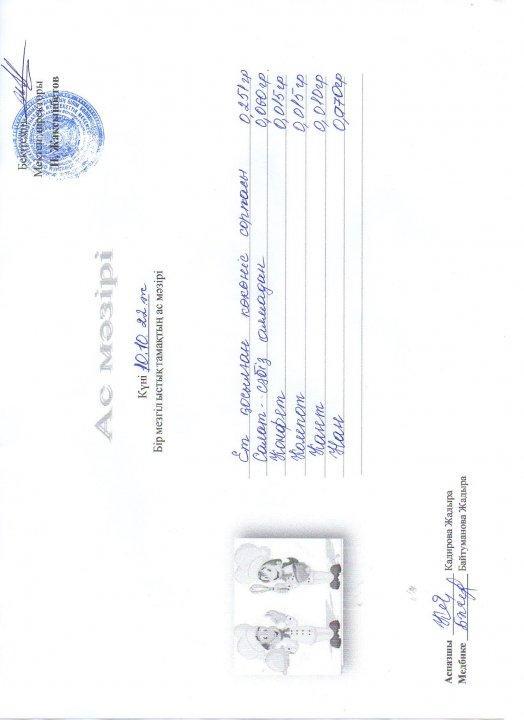 Бекітемін
Мектеп директоры
Н. Жақсылықов
Ас мәзірі
Күні 10.10 22 ж
Бір мезгіл ыстық тамақтың ас мәзірі
Ет қосылған көкөніс сорпасы 0,251гр
Салат - сәбіз алмадан 0,060гр.
Конфет 0,015гр
Компот 0,015гр
Кант 0,010гр
Нан 0,070гр
Аспазшы Кадирова Жадыра
Медбике Байтуманова Жадыра